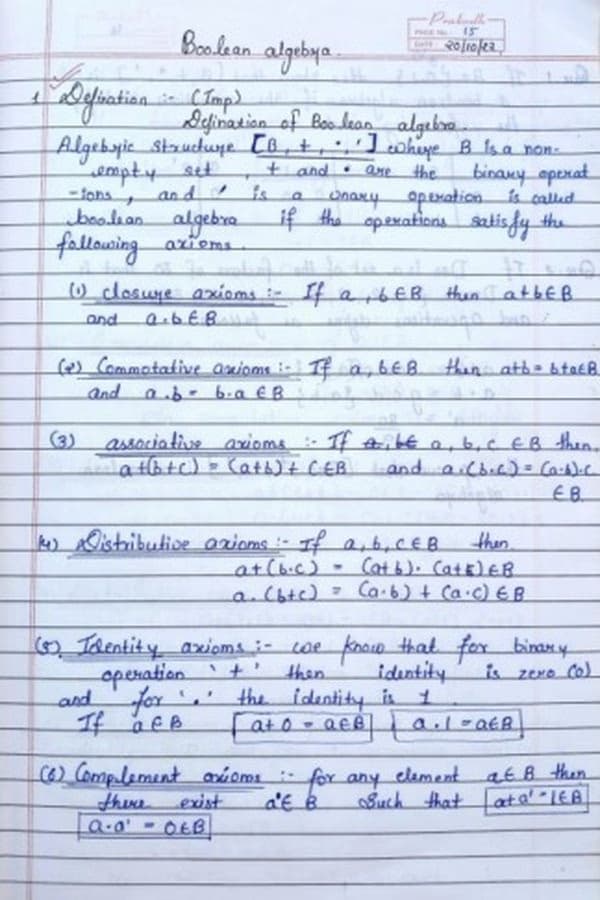 Prabodh
PAGE No. 15
DATE 20/10/22
Boolean algebra.
1 Defination :- (Imp)
Defination of Boolean algebra.
Algebric structure [B, +, ·, '] where B is a non-
empty set, + and · are the binary operat
-ions, and ' is a unary operation is called
boolean algebra if the operations satisfy the
following axioms.
(1) closure axioms :- If a, b ∈ B then a+b ∈ B
and a·b ∈ B
(2) Commotative axioms :- If a, b ∈ B then a+b = b+a ∈ B
and a·b = b·a ∈ B
(3) associative axioms :- If a, b, c ∈ B then,
a+(b+c) = (a+b)+c ∈ B and a·(b·c) = (a·b)·c
∈ B.
(4) Distributive axioms :- If a, b, c ∈ B then.
a+(b·c) = (a+b)·(a+c) ∈ B
a·(b+c) = (a·b)+(a·c) ∈ B
(5) Identity axioms :- we know that for binary
operation '+' then identity is zero (0)
and for '·' the identity is 1
If a ∈ B a+0 = a ∈ B a·1 = a ∈ B
(6) Complement axioms :- for any element a ∈ B then
there exist a' ∈ B such that a+a' = 1 ∈ B
a·a' = 0 ∈ B